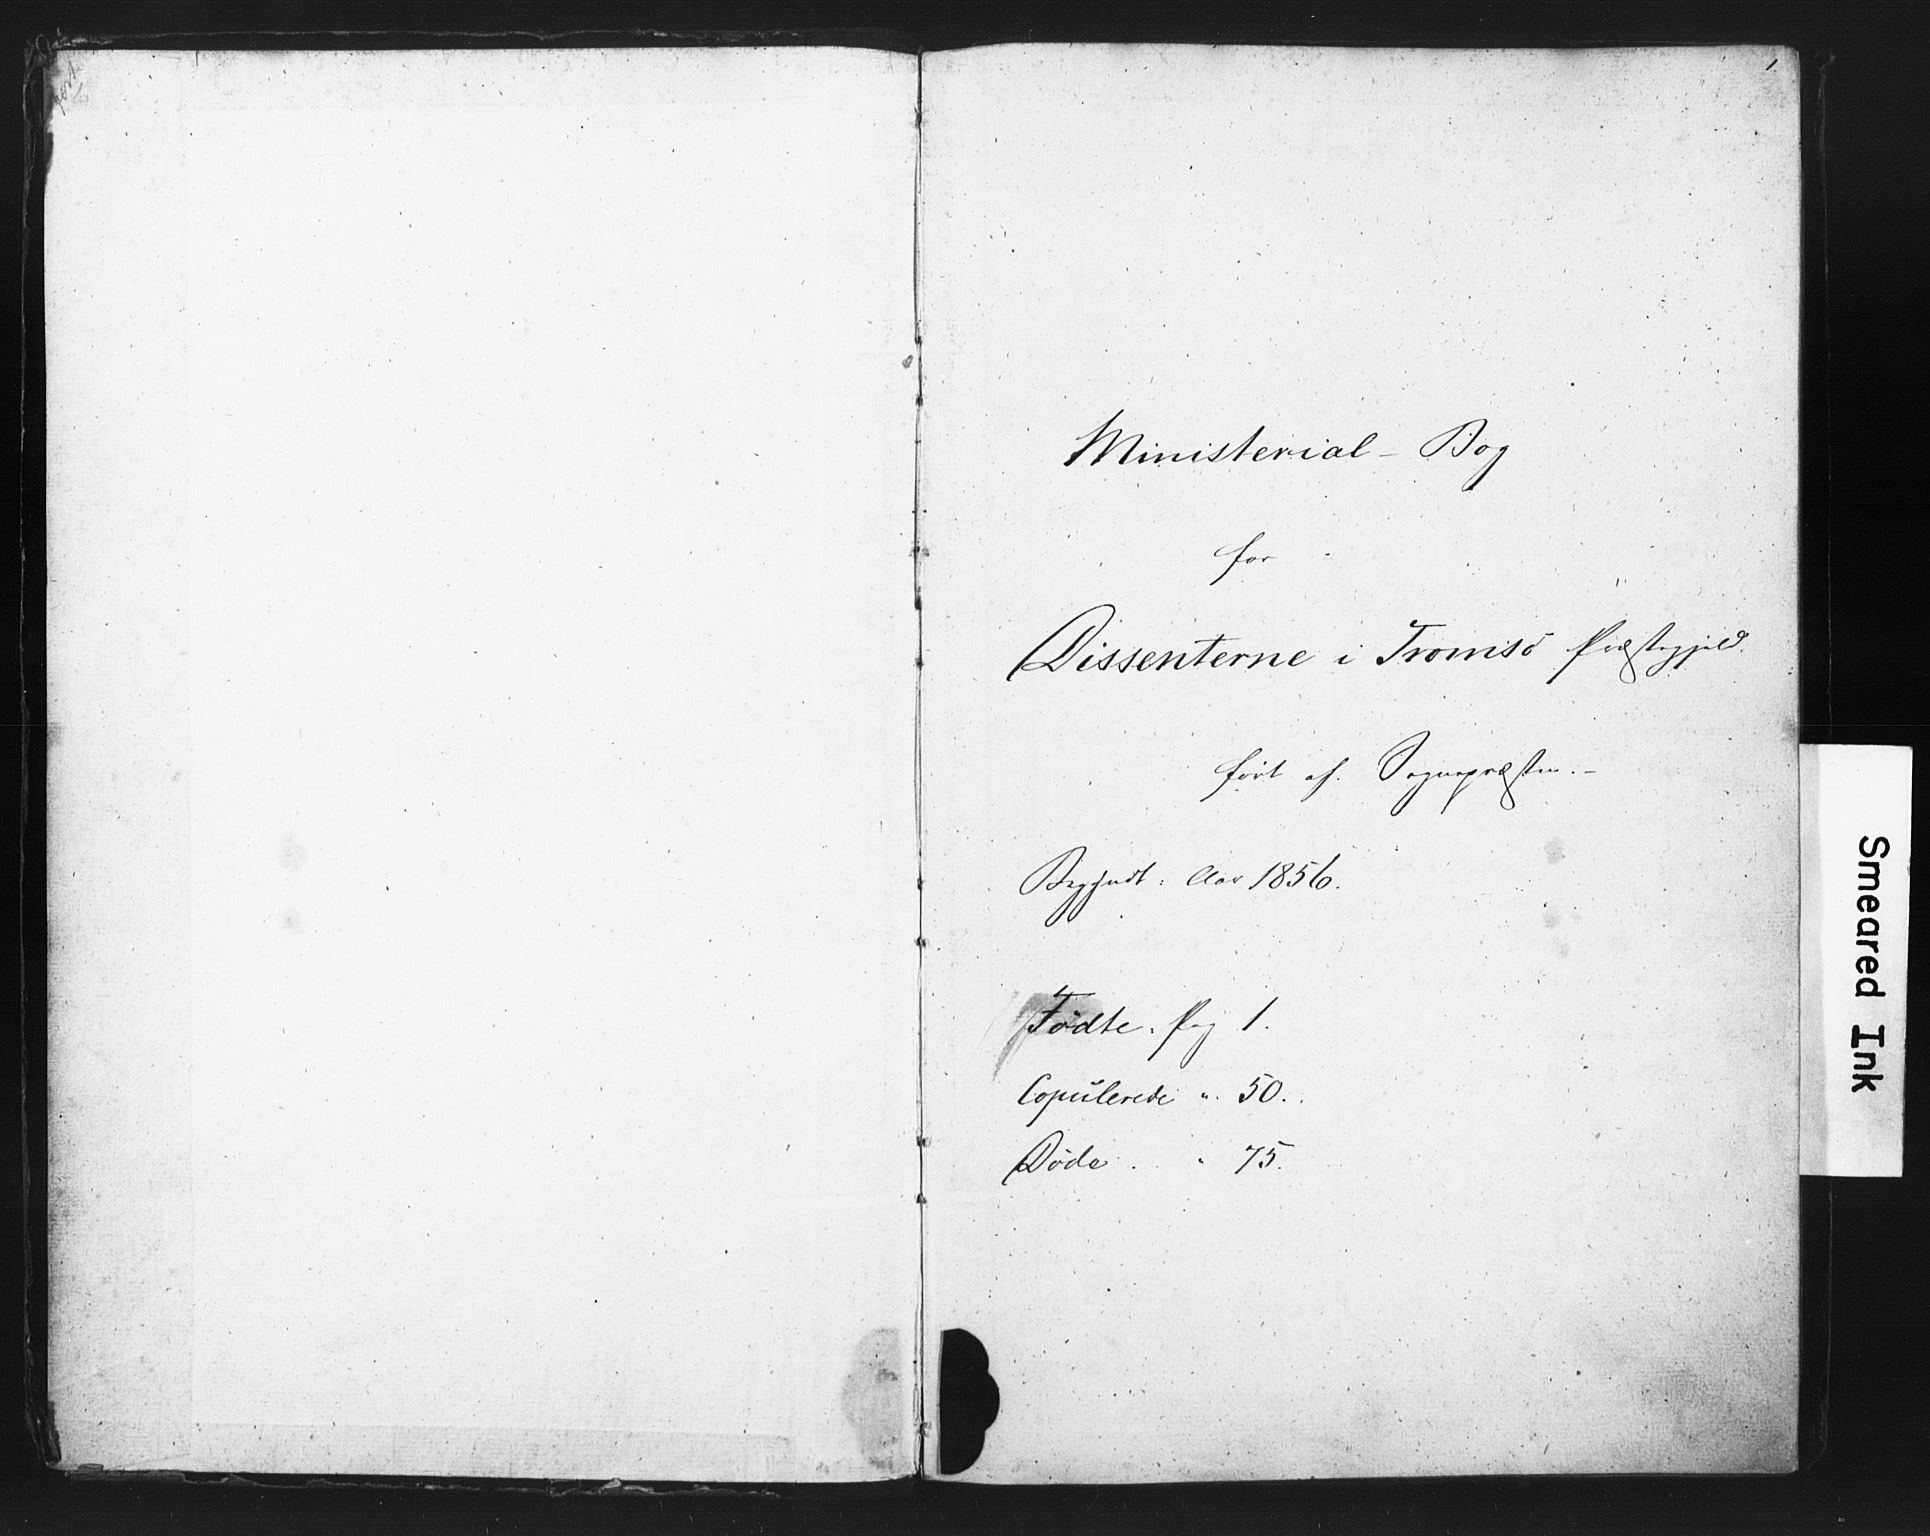 1.
Ministerial-Bog
for
Dissenterne i Tromsö Præstegjeld.
ført af Sognepræsten.-
Begyndt: Aar 1856.
Fødte. Pag 1.
Copŭlerede " 50.
Døde. " 75.
Smeared Ink